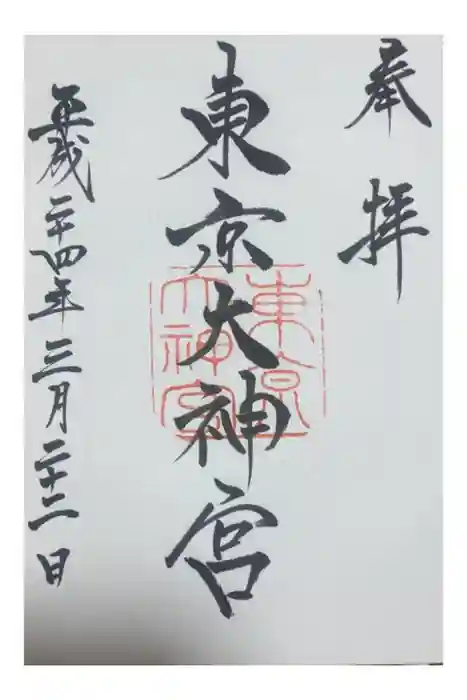 奉拝
東京大神宮
東京大神宮
平成二十四年三月二十二日